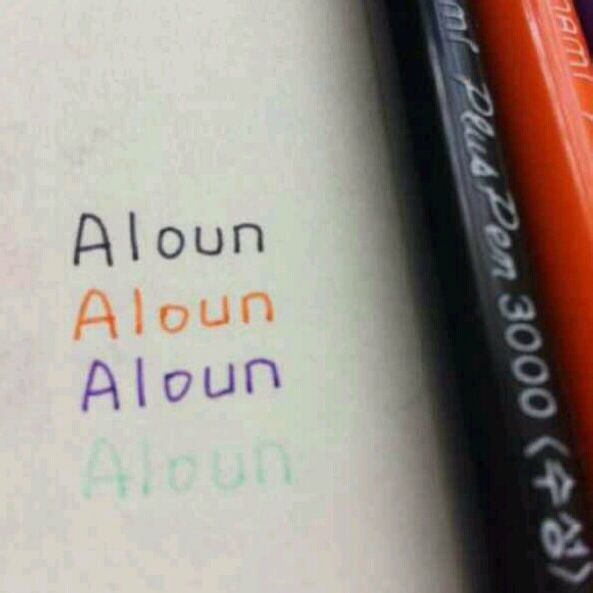 Aloun
Aloun
Aloun
Aloun
Plus Pen 3000 (수성)